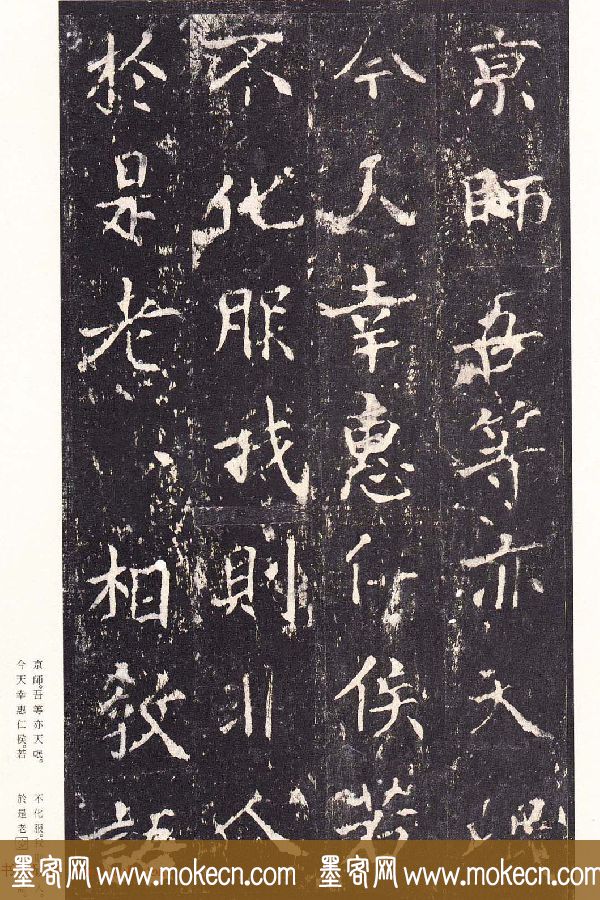 京師吾等亦天氓
今天幸惠仁侯若
不化服我則非人
於是老少相教語
京師。吾等亦天氓。
今天幸惠仁侯。若
不化服
於是老少
墨客网 www.mokecn.com 墨客网 www.mokecn.com
书